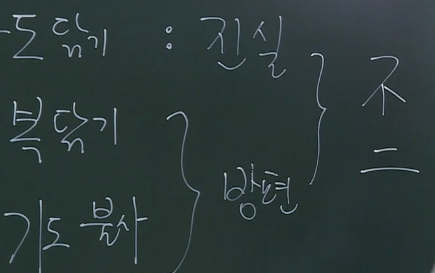 도 닦기 : 진실
복 닦기
방편
기도 봉사
不二